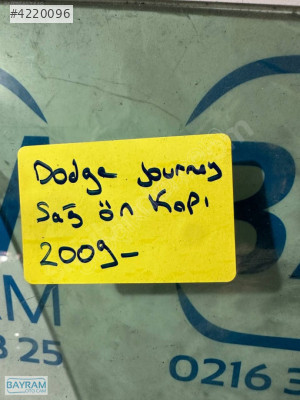 #4220096
Dodge Journey
Sağ ön Kapı
2009-
AM
3 25
0216 3
BAYRAM